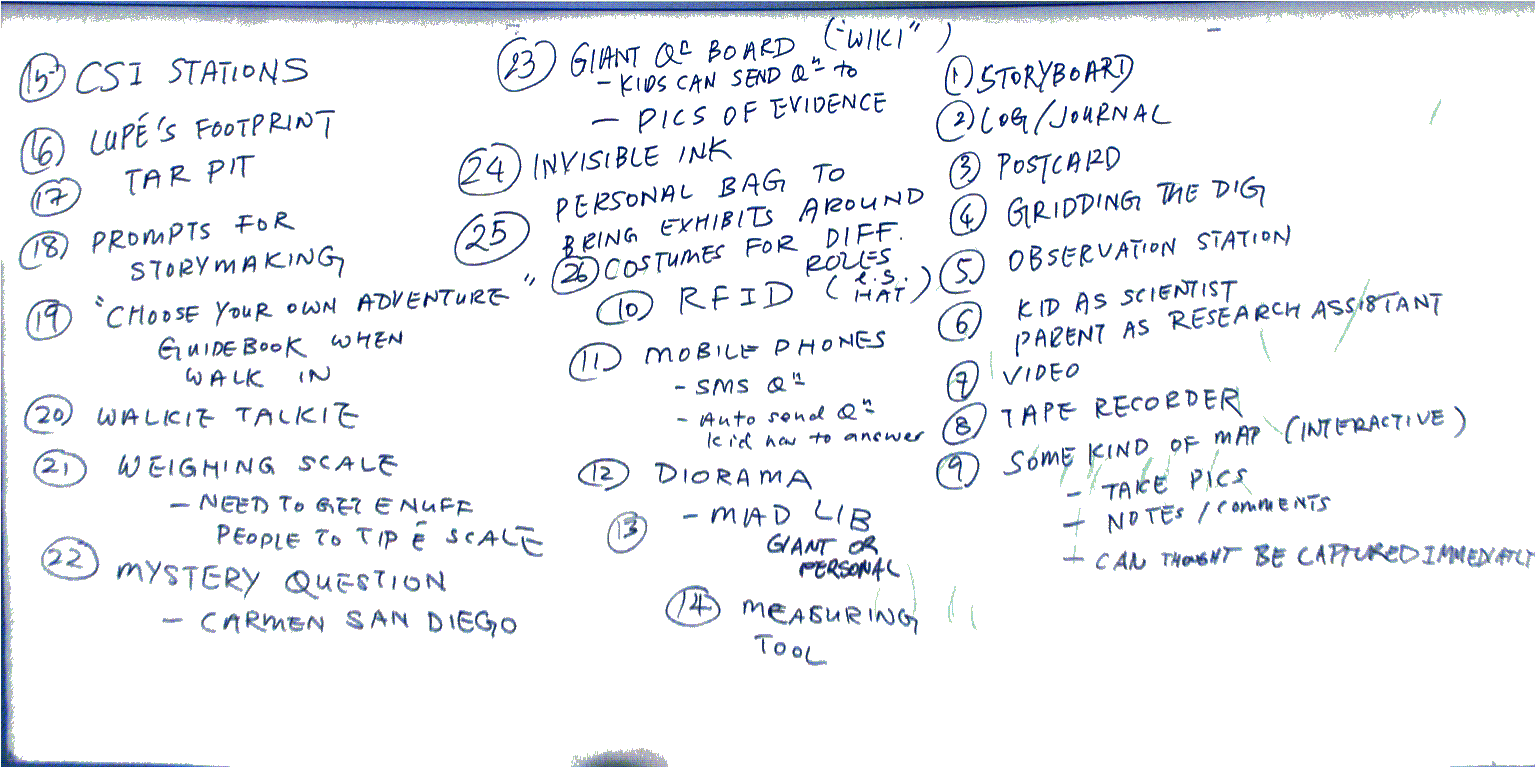 15 CSI STATIONS
16 LUPÉ'S FOOTPRINT
17 TAR PIT
18 PROMPTS FOR
STORYMAKING
19 "CHOOSE YOUR OWN ADVENTURE"
GUIDEBOOK WHEN
WALK IN
20 WALKIE TALKIE
21 WEIGHING SCALE
- NEED TO GET ENUFF
PEOPLE TO TIP É SCALE
22 MYSTERY QUESTION
- CARMEN SAN DIEGO
23 GIANT Qn BOARD ("WIKI")
- KIDS CAN SEND Qn to
- PICS OF EVIDENCE
24 INVISIBLE INK
25 PERSONAL BAG TO
BRING EXHIBITS AROUND
26 COSTUMES FOR DIFF.
ROLES
(e.g. HAT)
10 RFID
11 MOBILE PHONES
- SMS Qn
- Auto send Qn
kid has to answer
12 DIORAMA
13 - MAD LIB
GIANT OR
PERSONAL
14 MEASURING
TOOL
1 STORYBOARD
2 LOG/JOURNAL
3 POSTCARD
4 GRIDDING THE DIG
5 OBSERVATION STATION
6 KID AS SCIENTIST
PARENT AS RESEARCH ASSISTANT
7 VIDEO
8 TAPE RECORDER
9 SOME KIND OF MAP (INTERACTIVE)
- TAKE PICS
- NOTES/COMMENTS
- CAN THOUGHT BE CAPTURED IMMEDIATELY